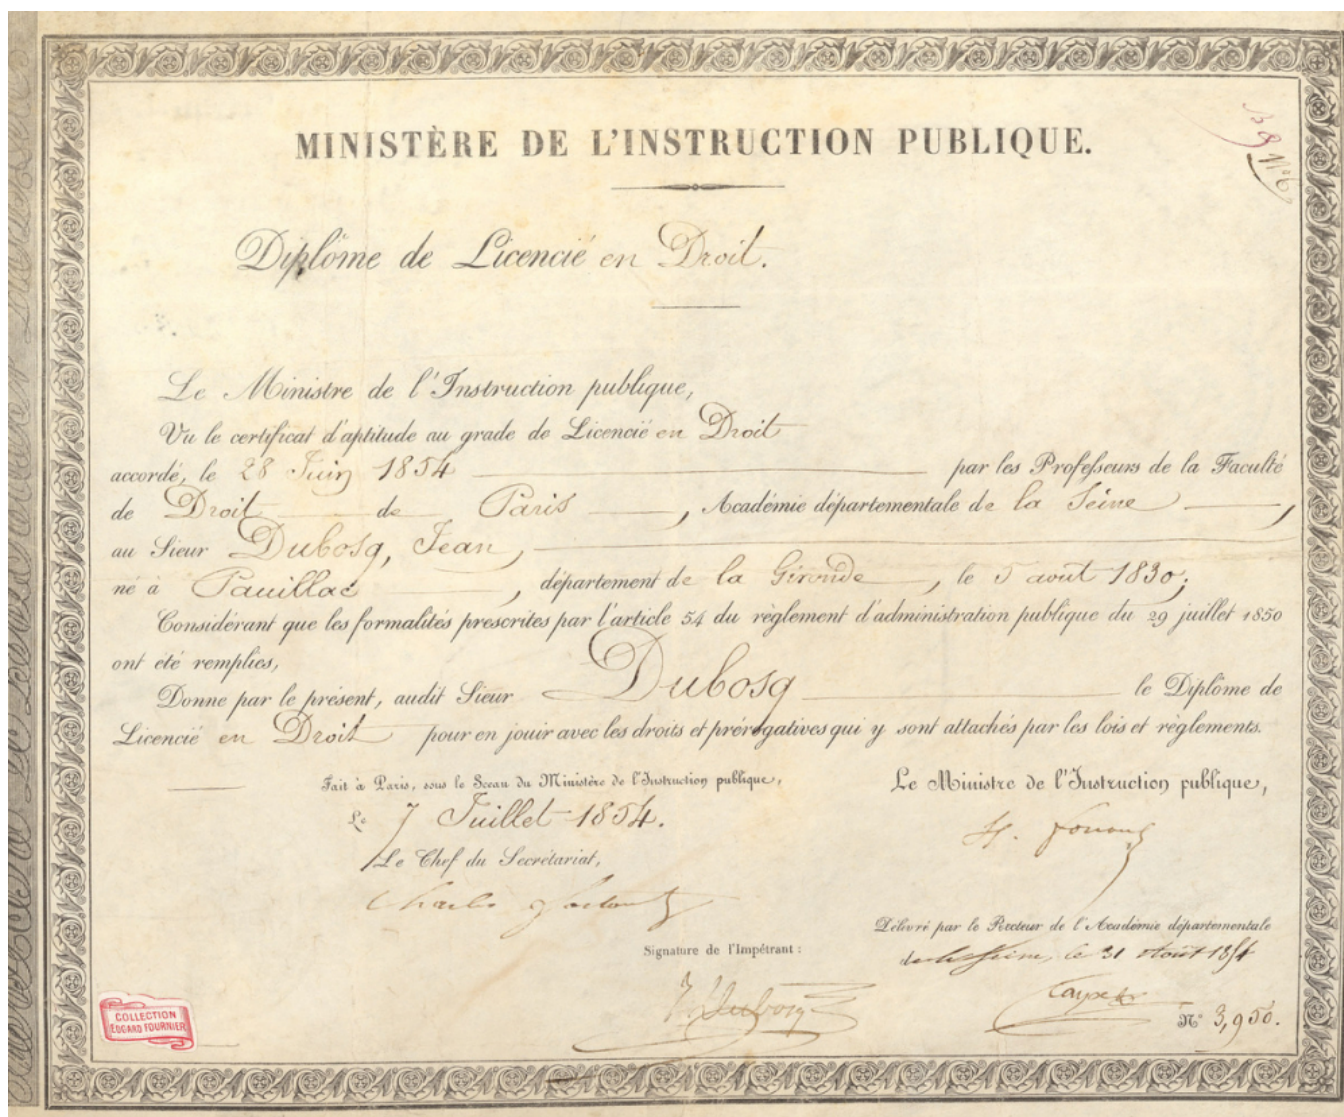 MINISTÈRE DE L'INSTRUCTION PUBLIQUE.
Diplôme de Licencié en Droit.
Le Ministre de l'Instruction publique,
Vu le certificat d'aptitude au grade de Licencié en Droit
accordé, le 28 Juin 1854 par les Professeurs de la Faculté
de Droit de Paris, Académie départementale de la Seine,
au Sieur Dubosq, Jean,
né à Pauillac, département de la Gironde, le 5 août 1830;
Considérant que les formalités prescrites par l'article 54 du règlement d'administration publique du 29 juillet 1850
ont été remplies,
Donne par le présent, audit Sieur Dubosq le Diplôme de
Licencié en Droit pour en jouir avec les droits et prérogatives qui y sont attachés par les lois et règlements.
Fait à Paris, sous le Sceau du Ministère de l'Instruction publique,
Le 7 Juillet 1854.
Le Chef du Secrétariat,
Charles
Le Ministre de l'Instruction publique,
H. Fortoul
Délivré par le Recteur de l'Académie départementale
de la Seine, le 31 Août 1854
Signature de l'Impétrant :
J. Dubosq
Cayx
No 3,950.
COLLECTION
EDGARD FOURNIER